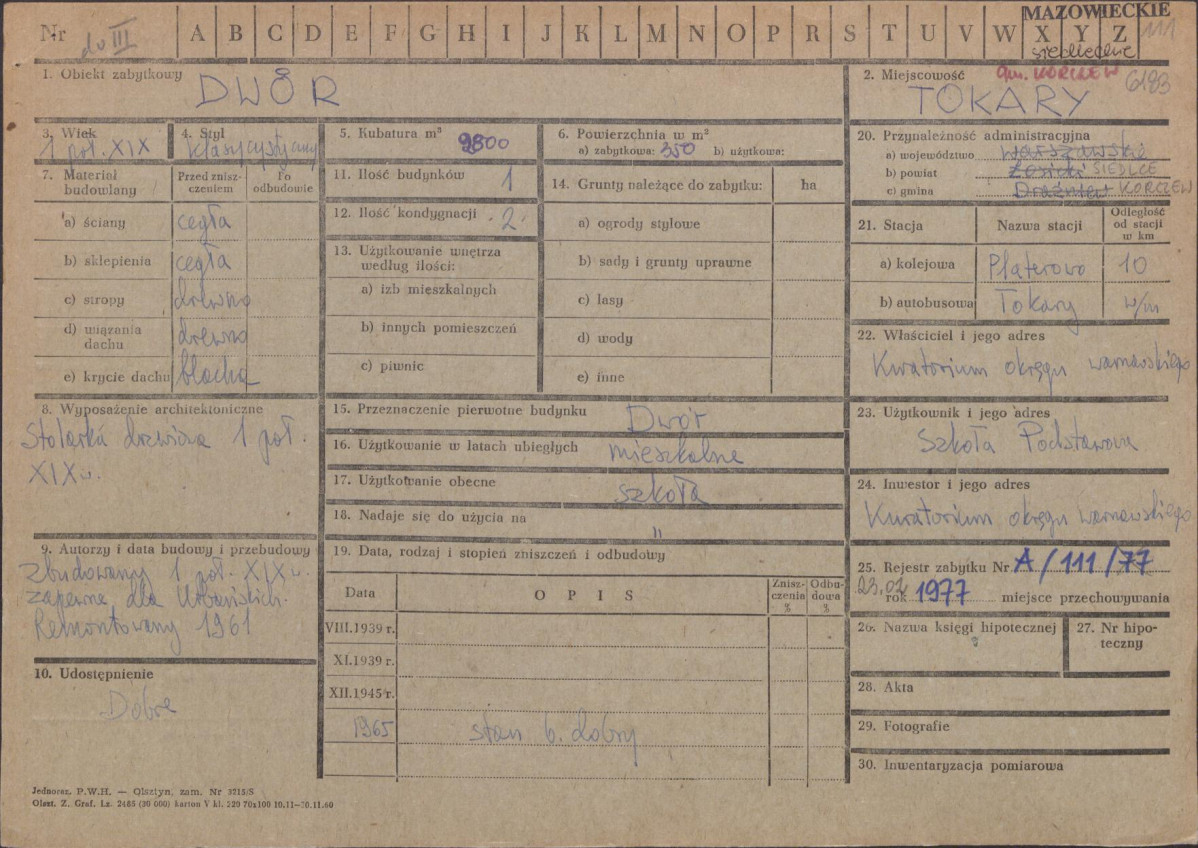 Nr do III A B C D E F G H I J K L M N O P R S T U V W X Y Z
MAZOWIECKIE 111
siedleckie
1. Obiekt zabytkowy
DWÓR
2. Miejscowość gm. KORCZEW 6183
TOKARY
3. Wiek
1 poł. XIX
4. Styl
klasycystyczny
5. Kubatura m³ 9800
6. Powierzchnia w m²
a) zabytkowa: 350 b) użytkowa:
7. Materiał budowlany
Przed zniszczeniem
Po odbudowie
a) ściany cegła
b) sklepienia cegła
c) stropy drewno
d) wiązania dachu drewno
e) krycie dachu blacha
8. Wyposażenie architektoniczne
Stolarka drzwiowa 1 poł.
XIX w.
9. Autorzy i data budowy i przebudowy
Zbudowany 1 poł. XIX w.
zapewne dla Urbańskich.
Remontowany 1961
10. Udostępnienie
Dobre
11. Ilość budynków 1
12. Ilość kondygnacji 2
13. Użytkowanie wnętrza
według ilości:
a) izb mieszkalnych
b) innych pomieszczeń
c) piwnic
14. Grunty należące do zabytku: ha
a) ogrody stylowe
b) sady i grunty uprawne
c) lasy
d) wody
e) inne
15. Przeznaczenie pierwotne budynku Dwór
16. Użytkowanie w latach ubiegłych mieszkalne
17. Użytkowanie obecne szkoła
18. Nadaje się do użycia na "
19. Data, rodzaj i stopień zniszczeń i odbudowy
Data O P I S Zniszczenia % Odbudowa %
VIII.1939 r.
XI.1939 r.
XII.1945 r.
1965 stan b. dobry
20. Przynależność administracyjna
a) województwo Warszawskie
b) powiat Łosicki SIEDLCE
c) gmina Drażniew KORCZEW
21. Stacja Nazwa stacji Odległość od stacji w km
a) kolejowa Platerowo 10
b) autobusowa Tokary w/m
22. Właściciel i jego adres
Kuratorium okręgu warszawskiego
23. Użytkownik i jego adres
Szkoła Podstawowa
24. Inwestor i jego adres
Kuratorium okręgu warszawskiego
25. Rejestr zabytku Nr A/111/77
rok 1977 miejsce przechowywania
26. Nazwa księgi hipotecznej
27. Nr hipoteczny
28. Akta
29. Fotografie
30. Inwentaryzacja pomiarowa
Jednoraz. P.W.H. — Olsztyn, zam. Nr 3715/S
Olszt. Z. Graf. Lz. 2455 (30 000) karton V kl. 220 70x100 10.11—20.11.60